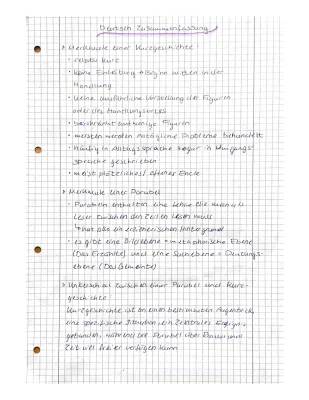 Deutsch Zusammenfassung
> Merkmale einer Kurzgeschichte
• relativ kurz
• keine Einleitung → Beginn mitten in der
Handlung
• keine ausführliche Vorstellung der Figuren
oder des Handlungsortes
• beschränkte Figuren
• meistens werden alltägliche Probleme behandelt
• häufig in Alltagssprache sogar in Umgangs-
sprache geschrieben
• meist plötzliches / offenes Ende
> Merkmale einer Parabel
• Parabeln enthalten eine Lehre die man als
Leser zwischen den Zeilen lesen muss
↳ hat also ein erzieherischen Hintergrund
• es gibt eine Bildebene = metaphorische Ebene
(Das Erzählte) und eine Sachebene = Deutungs-
ebene (Das Gemeinte)
> Unterschied zwischen einer Parabel und Kurz-
geschichte
Kurzgeschichte ist an einen bestimmten Augenblick,
eine spezifische Situation, ein zentrales Ereignis
gebunden, während die Parabel über Raum und
Zeit viel freier verfügen kann